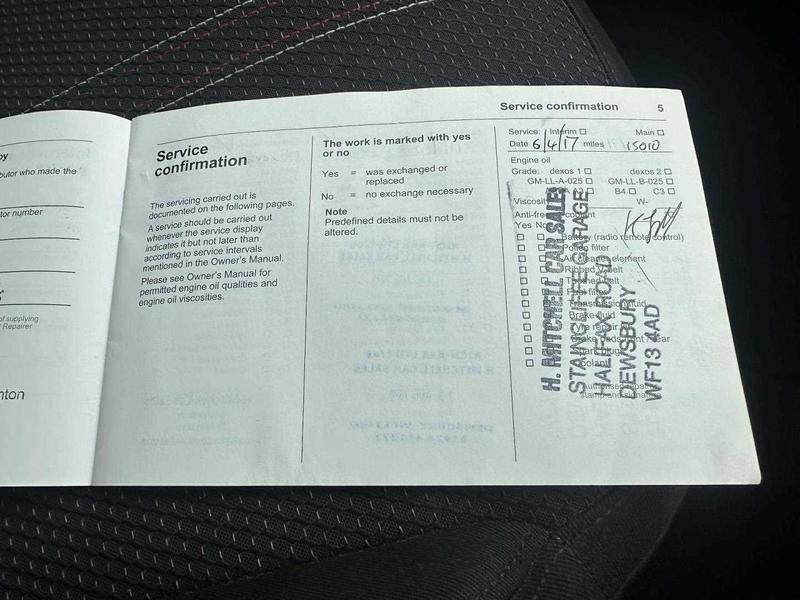 by
butor who made the
tor number
of supplying
Repairer
nton
Service
confirmation
The servicing carried out is
documented on the following pages.
A service should be carried out
whenever the service display
indicates it but not later than
according to service intervals
mentioned in the Owner's Manual.
Please see Owner's Manual for
permitted engine oil qualities and
engine oil viscosities.
The work is marked with yes
or no
Yes = was exchanged or
replaced
No = no exchange necessary
Note
Predefined details must not be
altered.
Service confirmation 5
Service: Interim Main
Date 6/4/17 miles 15010
Engine oil
Grade: dexos 1 dexos 2
GM-LL-A-025 GM-LL-B-025
B4 C3
Viscosity W-
Yes No
Battery (radio remote control)
Pollen filter
Air cleaner element
Ribbed V-belt
Transmission fluid
Brake fluid
Tyre repair
H. MITCHELL CAR SALES
STANCLIFFE GARAGE
HALIFAX ROAD
DEWSBURY
WF13 4AD